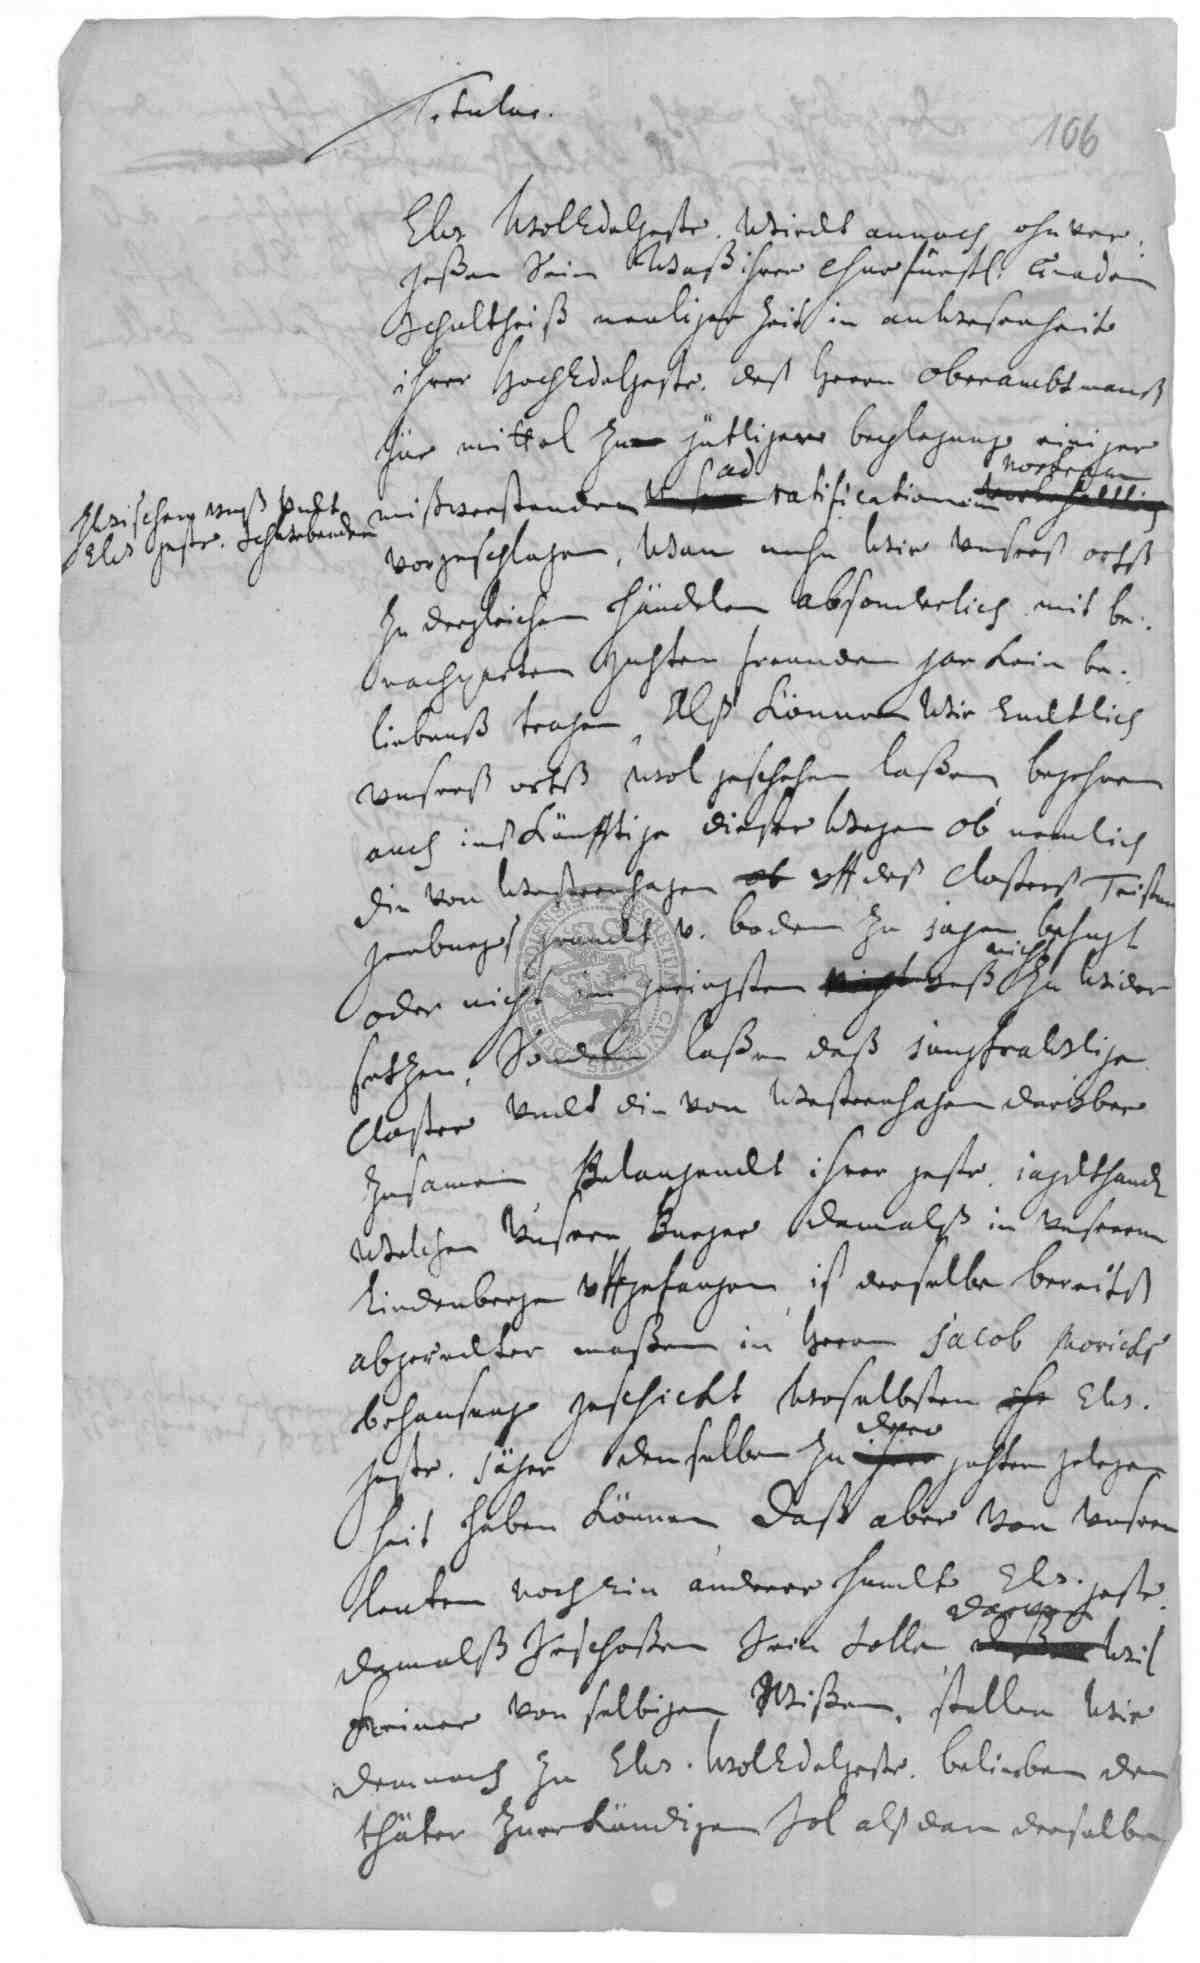 Titulus.
106
Ew. WolEdelgestr. Wirdt annoch ohnver-
geßen Sein Waß ihrer Churfürstl. Gnaden
Schultheiß neuliger Zeit in anwesenheit
ihrer HochEdelgestr. deß Herrn Oberambtmanß
für mittel zu gütliger beylegung einiger
Zwischen unß undt
Ew. gestr. Schwebenden
mißverstenden ad ratification
vorgeschlagen, Wan nuhn Wir Unserß orthß
zu dergleichen Händelen absonderlich mit be-
nachparten guhten freunden gar kein be-
liebenß tragen, Alß können Wir Endtlich
unserß orthß wol geschehen laßen, begehren
auch inß künfftige dieser Wegen ob nemlich
die von Westernhagen uff deß Closters Teistun-
genburgs grundt v. boden zu jagen befugt
oder nicht im geringsten unß nicht zu wider
setzen, Sondern laßen daß jungfrawlige
Closter undt die von Westernhagen darüber
zusamen. Belangendt ihrer gestr. jagdthundt
Welchen Unsere Burger damalß in unserem
Lindenberge uffgefangen, ist derselbe bereitß
abgeredter maßen in Herrn Jacob Moricks
behausung geschickt woselbsten Ew.
gestr. jäger denselben zu gehten gelegen
heit haben können, Daß aber von unsern
leuten noch ein anderer hundt Ew. gestr.
damalß geschoßen sein solle, darvon wil
keiner von selbigen Wißen, stellen wir
demnach zu Ew. WolEdelgestr. belieben den
thäter zuerkündigen, Sol alßdan derselbe